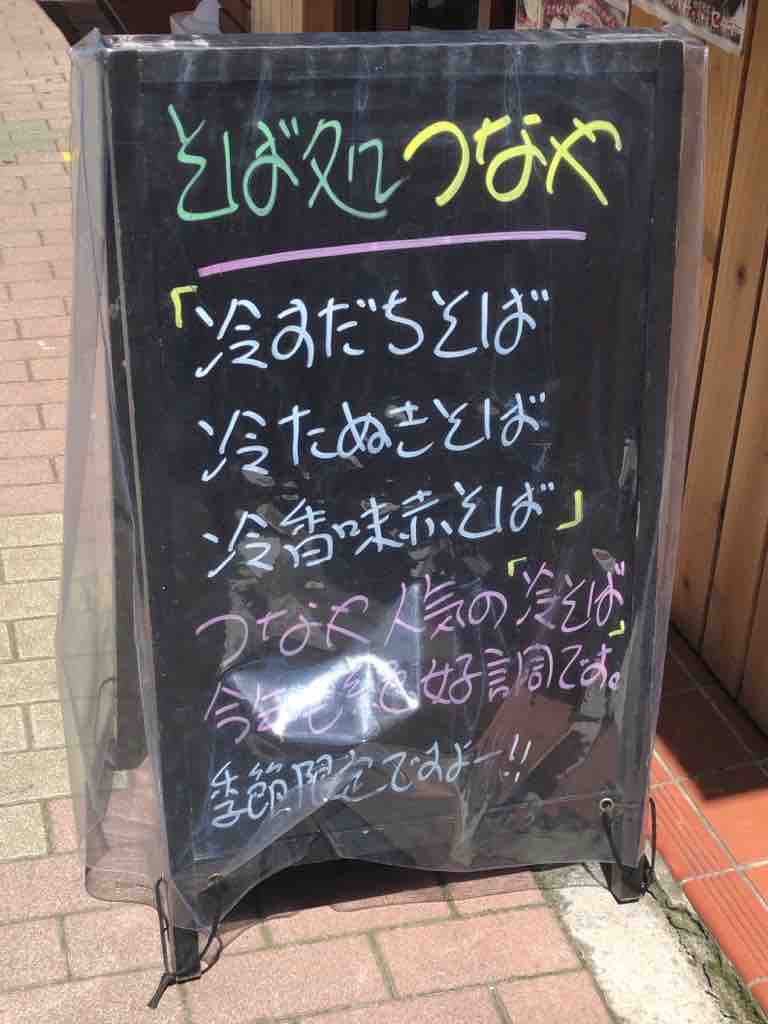 そば処つなや
「冷すだちそば
冷たぬきそば
冷香味赤そば」
つなや人気の「冷そば」
今年も絶好調です。
季節限定ですよー!!